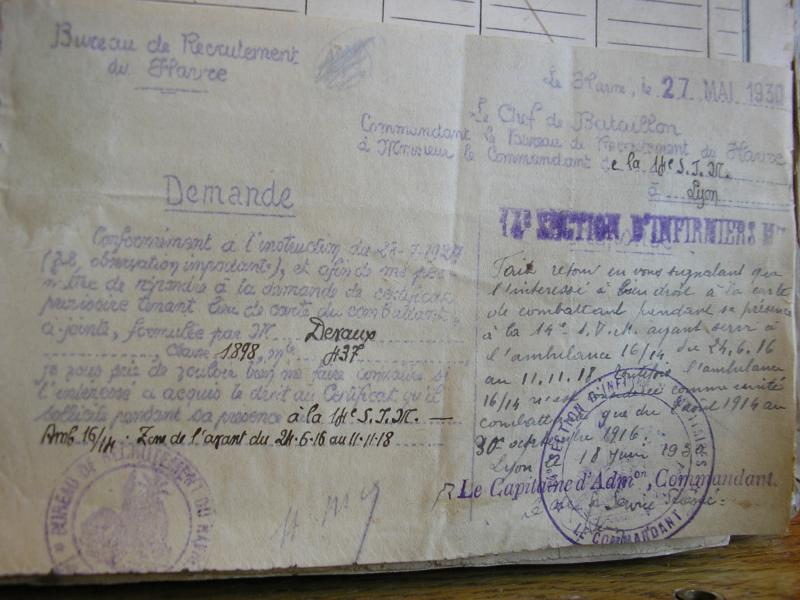 Bureau de Recrutement
du Havre
Le Havre, le 27 MAI 1930
Le Chef de Bataillon
Commandant le Bureau de Recrutement du Havre
à Monsieur le Commandant de la 14e S.I.M.
à Lyon
Demande
Conformément à l'instruction du 28-7-1927
observation importante), et afin de me
de répondre à la demande de certificat
provisoire tenant lieu de carte du combattant
ci-jointe, formulée par M. Devaux
, classe 1898, mle 437
je vous prie de vouloir bien me faire connaître si
l'intéressé a acquis le droit au Certificat qu'il
sollicite pendant sa présence à la 14e S.I.M.
Amb. 16/14. Zone de l'avant du 24-6-16 au 11-11-18
14e SECTION D'INFIRMIERS
Fait retour en vous signalant que
l'intéressé a bien droit à la carte
de combattant pendant sa présence
à la 14e S.I.M. ayant servi à
l'ambulance 16/14 du 24.6.16
au 11.11.18 l'ambulance
16/14 comme unité
combattante que du août 1914 au
30 octobre 1916.
Lyon le 18 juin 193
Le Capitaine d'Admon, Commandant.
BUREAU DE RECRUTEMENT DU HAVRE
SECTION D'INFIRMIERS MILITAIRES
LE COMMANDANT